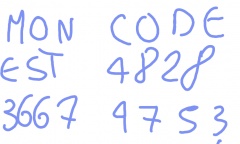 MON CODE
EST 4828
3667 4753